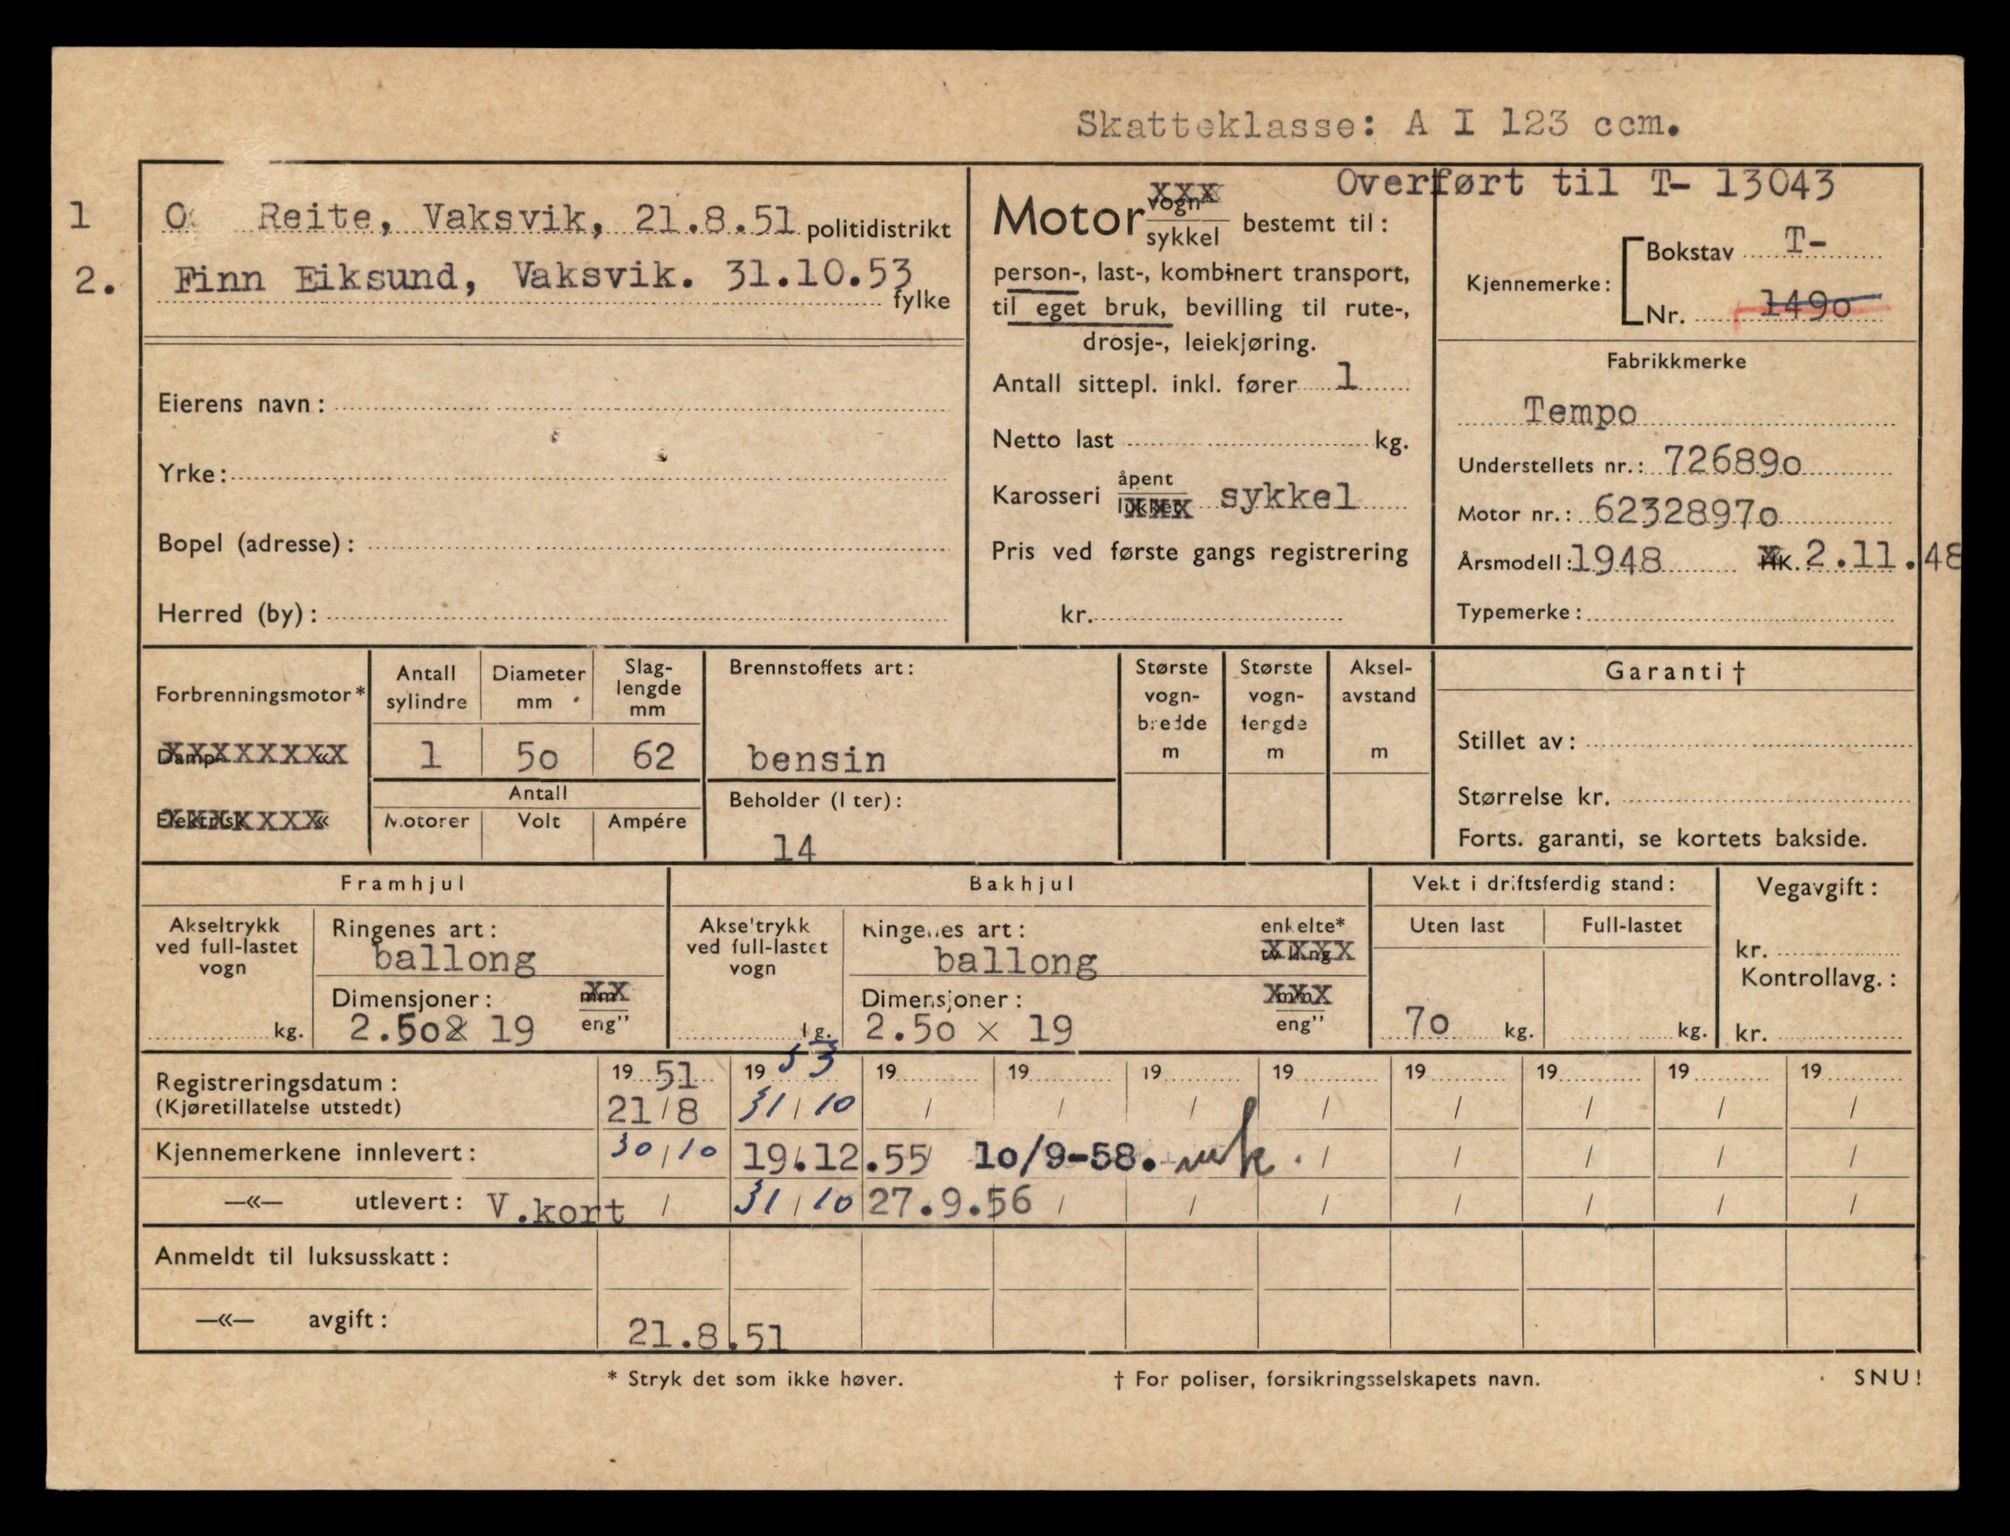 Skatteklasse: A I 123 ccm.
Overført til T- 13043
1 Reite, Vaksvik, 21.8.51 politidistrikt
2. Finn Eiksund, Vaksvik. 31.10.53 fylke
Eierens navn:
Yrke:
Bopel (adresse):
Herred (by):
Motor vogn sykkel bestemt til:
person-, last-, kombinert transport,
til eget bruk, bevilling til rute-,
drosje-, leiekjøring.
Antall sittepl. inkl. fører 1
Netto last kg.
Karosseri åpent lukket sykkel
Pris ved første gangs registrering
kr.
Kjennemerke: Bokstav T-
Nr. 1490
Fabrikkmerke
Tempo
Understellets nr.: 726890
Motor nr.: 62328970
Årsmodell: 1948 HK. 2.11.48
Typemerke:
Forbrenningsmotor*
Damp «
Elektrisk «
Antall sylindre
1
Diameter mm
50
Slaglengde mm
62
Antall
Motorer Volt Ampére
Brennstoffets art:
bensin
Beholder (liter):
14
Største vognbredde m
Største vognlengde m
Akselavstand m
Garanti †
Stillet av:
Størrelse kr.
Forts. garanti, se kortets bakside.
Framhjul
Akseltrykk ved full-lastet vogn
kg.
Ringenes art:
ballong
Dimensjoner: mm eng"
2.50 x 19
Bakhjul
Akseltrykk ved full-lastet vogn
kg.
Ringenes art: enkelte* tvilling
ballong
Dimensjoner: mm eng"
2.50 x 19
Vekt i driftsferdig stand:
Uten last Full-lastet
70 kg. kg.
Vegavgift:
kr.
Kontrollavg.:
kr.
Registreringsdatum: 19 51 19 53 19 19 19 19 19 19 19 19
(Kjøretillatelse utstedt) 21/8 31/10 / / / / / / / /
Kjennemerkene innlevert: 30/10 19.12.55 10/9-58. / / / / /
—«— utlevert: V.kort / 31/10 27.9.56 / / / / / / /
Anmeldt til luksusskatt:
—«— avgift: 21.8.51
* Stryk det som ikke høver. † For poliser, forsikringsselskapets navn. SNU!